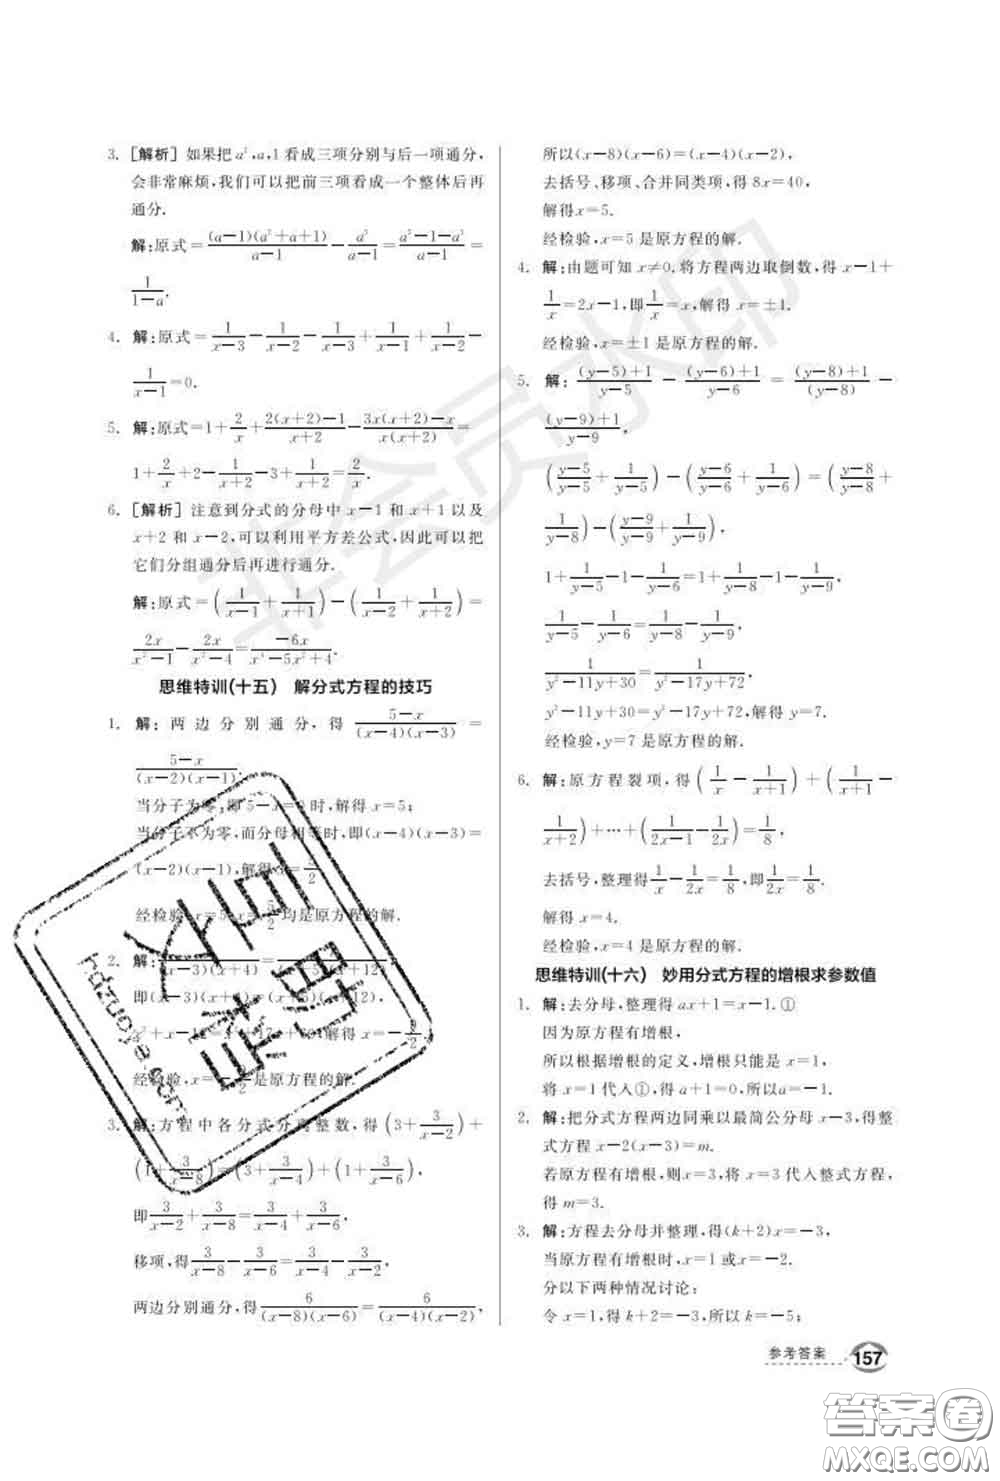 3. [解析] 如果把 a²,a,1 看成三项分别与后一项通分,
会非常麻烦,我们可以把前三项看成一个整体后再
通分.
解:原式=(a-1)(a²+a+1)/(a-1) - a³/(a-1) = (a³-1-a³)/(a-1) =
1/(1-a).
4. 解:原式=1/(x-3) - 1/(x-2) - 1/(x-3) + 1/(x-1) + 1/(x-2) -
1/(x-1)=0.
5. 解:原式=1+2/x+(2(x+2)-1)/(x+2) - (3x(x+2)-x)/(x(x+2))=
1+2/x+2-1/(x+2)-3+1/(x+2)=2/x.
6. [解析] 注意到分式的分母中 x-1 和 x+1 以及
x+2 和 x-2,可以利用平方差公式,因此可以把
它们分组通分后再进行通分.
解:原式=(1/(x-1)+1/(x+1))-(1/(x-2)+1/(x+2))=
2x/(x²-1)-2x/(x²-4)=-6x/(x⁴-5x²+4).
思维特训(十五) 解分式方程的技巧
1. 解:两边分别通分,得 (5-x)/((x-4)(x-3)) =
(5-x)/((x-2)(x-1).
当分子为零,即 5-x=0时,解得 x=5;
当分子不为零,而分母相等时,即(x-4)(x-3)=
(x-2)(x-1),解得 x=5/2
经检验,x=5,x=5/2均是原方程的解.
2. 解:
即(x-3)(x+4)=(x+5)(x+12),
经检验,x= 是原方程的解.
3. 解:方程中各分式分离整数,得(3+3/(x-2))+
(1+3/(x-8))=(3+3/(x-4))+(1+3/(x-6)),
即3/(x-2)+3/(x-8)=3/(x-4)+3/(x-6),
移项,得3/(x-8)-3/(x-6)=3/(x-4)-3/(x-2),
两边分别通分,得6/((x-8)(x-6))=6/((x-4)(x-2)),
所以(x-8)(x-6)=(x-4)(x-2),
去括号、移项、合并同类项,得 8x=40,
解得x=5.
经检验,x=5 是原方程的解.
4. 解:由题可知 x≠0.将方程两边取倒数,得 x-1+
1/x=2x-1,即1/x=x,解得 x=±1.
经检验,x=±1 是原方程的解.
5. 解:((y-5)+1)/(y-5) - ((y-6)+1)/(y-6) = ((y-8)+1)/(y-8) -
((y-9)+1)/(y-9),
((y-5)/(y-5)+1/(y-5))-((y-6)/(y-6)+1/(y-6))=((y-8)/(y-8)+
1/(y-8))-((y-9)/(y-9)+1/(y-9)).
1+1/(y-5)-1-1/(y-6)=1+1/(y-8)-1-1/(y-9),
1/(y-5)-1/(y-6)=1/(y-8)-1/(y-9),
1/(y²-11y+30)=1/(y²-17y+72),
y²-11y+30=y²-17y+72,解得 y=7.
经检验,y=7 是原方程的解.
6. 解:原方程裂项,得(1/x-1/(x+1))+(1/(x+1)-
1/(x+2))+…+(1/(2x-1)-1/2x)=1/8,
去括号,整理得1/x-1/2x=1/8,即1/2x=1/8.
解得 x=4.
经检验,x=4 是原方程的解.
思维特训(十六) 妙用分式方程的增根求参数值
1. 解:去分母,整理得 ax+1=x-1.①
因为原方程有增根,
所以根据增根的定义,增根只能是 x=1,
将 x=1代入①,得 a+1=0,所以a=-1.
2. 解:把分式方程两边同乘以最简公分母 x-3,得整
式方程 x-2(x-3)=m.
若原方程有增根,则x=3,将 x=3 代入整式方程,
得 m=3.
3. 解:方程去分母并整理,得(k+2)x=-3,
当原方程有增根时,x=1或x=-2.
分以下两种情况讨论:
令 x=1,得 k+2=-3,所以 k=-5;
参考答案 157
非会员水印
hdzuoye.com
答案圈
MXQE.COM